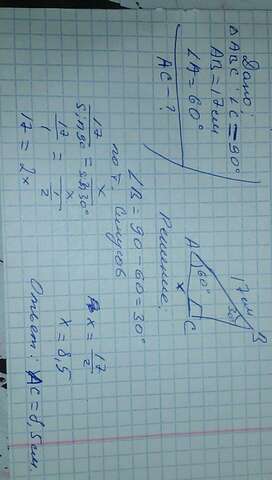 Дано:
△ABC, ∠C = 90°
AB = 17 см
∠A = 60°
AC - ?
B
17 см
30°
A
60°
x
C
Решение.
∠B = 90 - 60 = 30°
по т. синусов
17/sin 90 = x/sin 30°
17/1 = x/1/2
17 = 2x
x = 17/2
x = 8,5
Ответ: AC = 8,5 см.